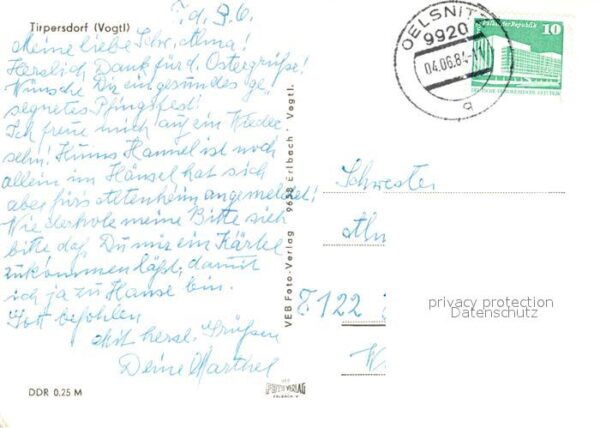 Tirpersdorf (Vogtl)
T. d. 3. 6.
Meine liebe Schw. Alma!
Herzlich Dank für d. Ostergrüße!
Wünsche Dir ein gesundes ge-
segnetes Pfingstfest!
Ich freue mich auf ein Wieder
sehn! Hannel ist noch
allein im Häusel hat sich
aber fürs Altenheim angemeldet!
Wiederhole meine Bitte
bitte daß Du mir ein Kärtel
zukommen läßt, damit
ich ja zu Hause bin.
Gott befohlen
Mit herzl. Grüßen
Deine Marthel
DDR 0.25 M
VEB Foto-Verlag 9658 Erlbach Vogtl.
VEB
FOTO VERLAG
ERLBACH V.
OELSNITZ
9920
04.06.84
a
Palast der Republik
10
DEUTSCHE DEMOKRATISCHE REPUBLIK
Schwester
Alm
7122
privacy protection
Datenschutz